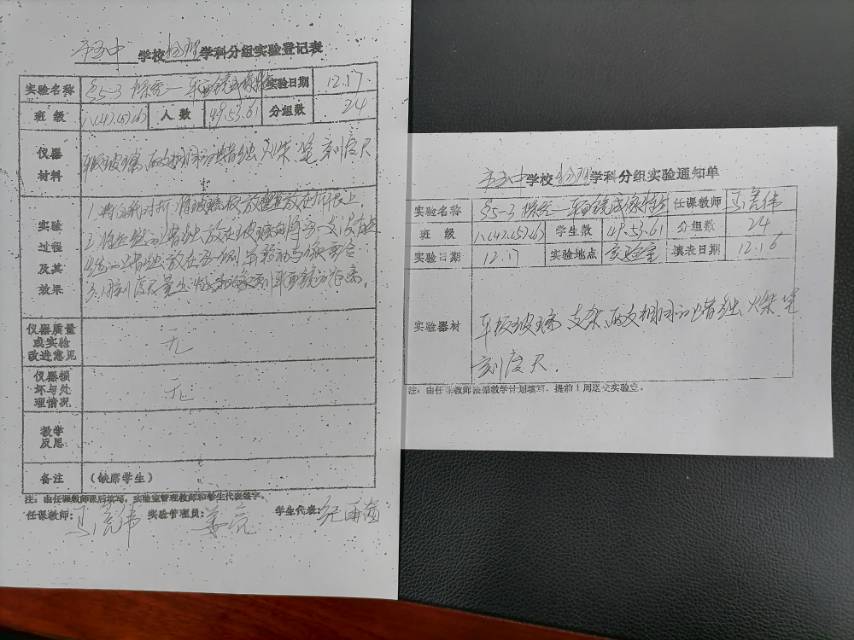 学校物理学科分组实验登记表
实验名称 §5-3 探究—平面镜成像特点 实验日期 12.17
班级 人数 49.53.61 分组数 24
仪器材料 平板玻璃 两支相同的蜡烛 火柴 笔 刻度尺
实验过程及其效果
1.将白纸对折 将玻璃板放置在折痕上
2.将点燃的蜡烛放在玻璃的 另一支没有点
燃的蜡烛放在另一侧 与像重合
3.用刻度尺量出 和像到平面镜的距离
仪器质量或实验改进意见 无
仪器损坏与处理情况 无
教学反思
备注 (缺席学生)
注：由任课教师课后填写，实验室管理教师和学生代表签字。
任课教师： 实验管理员： 学生代表：
学校物理学科分组实验通知单
实验名称 §5-3 探究—平面镜成像特点 任课教师
班级 学生数 49.53.61 分组数 24
实验日期 12.17 实验地点 实验室 填表日期 12.16
实验器材 平板玻璃 支架 两支相同的蜡烛 火柴 笔
刻度尺
注：由任课教师按照教学计划填写，提前1周送交实验室。